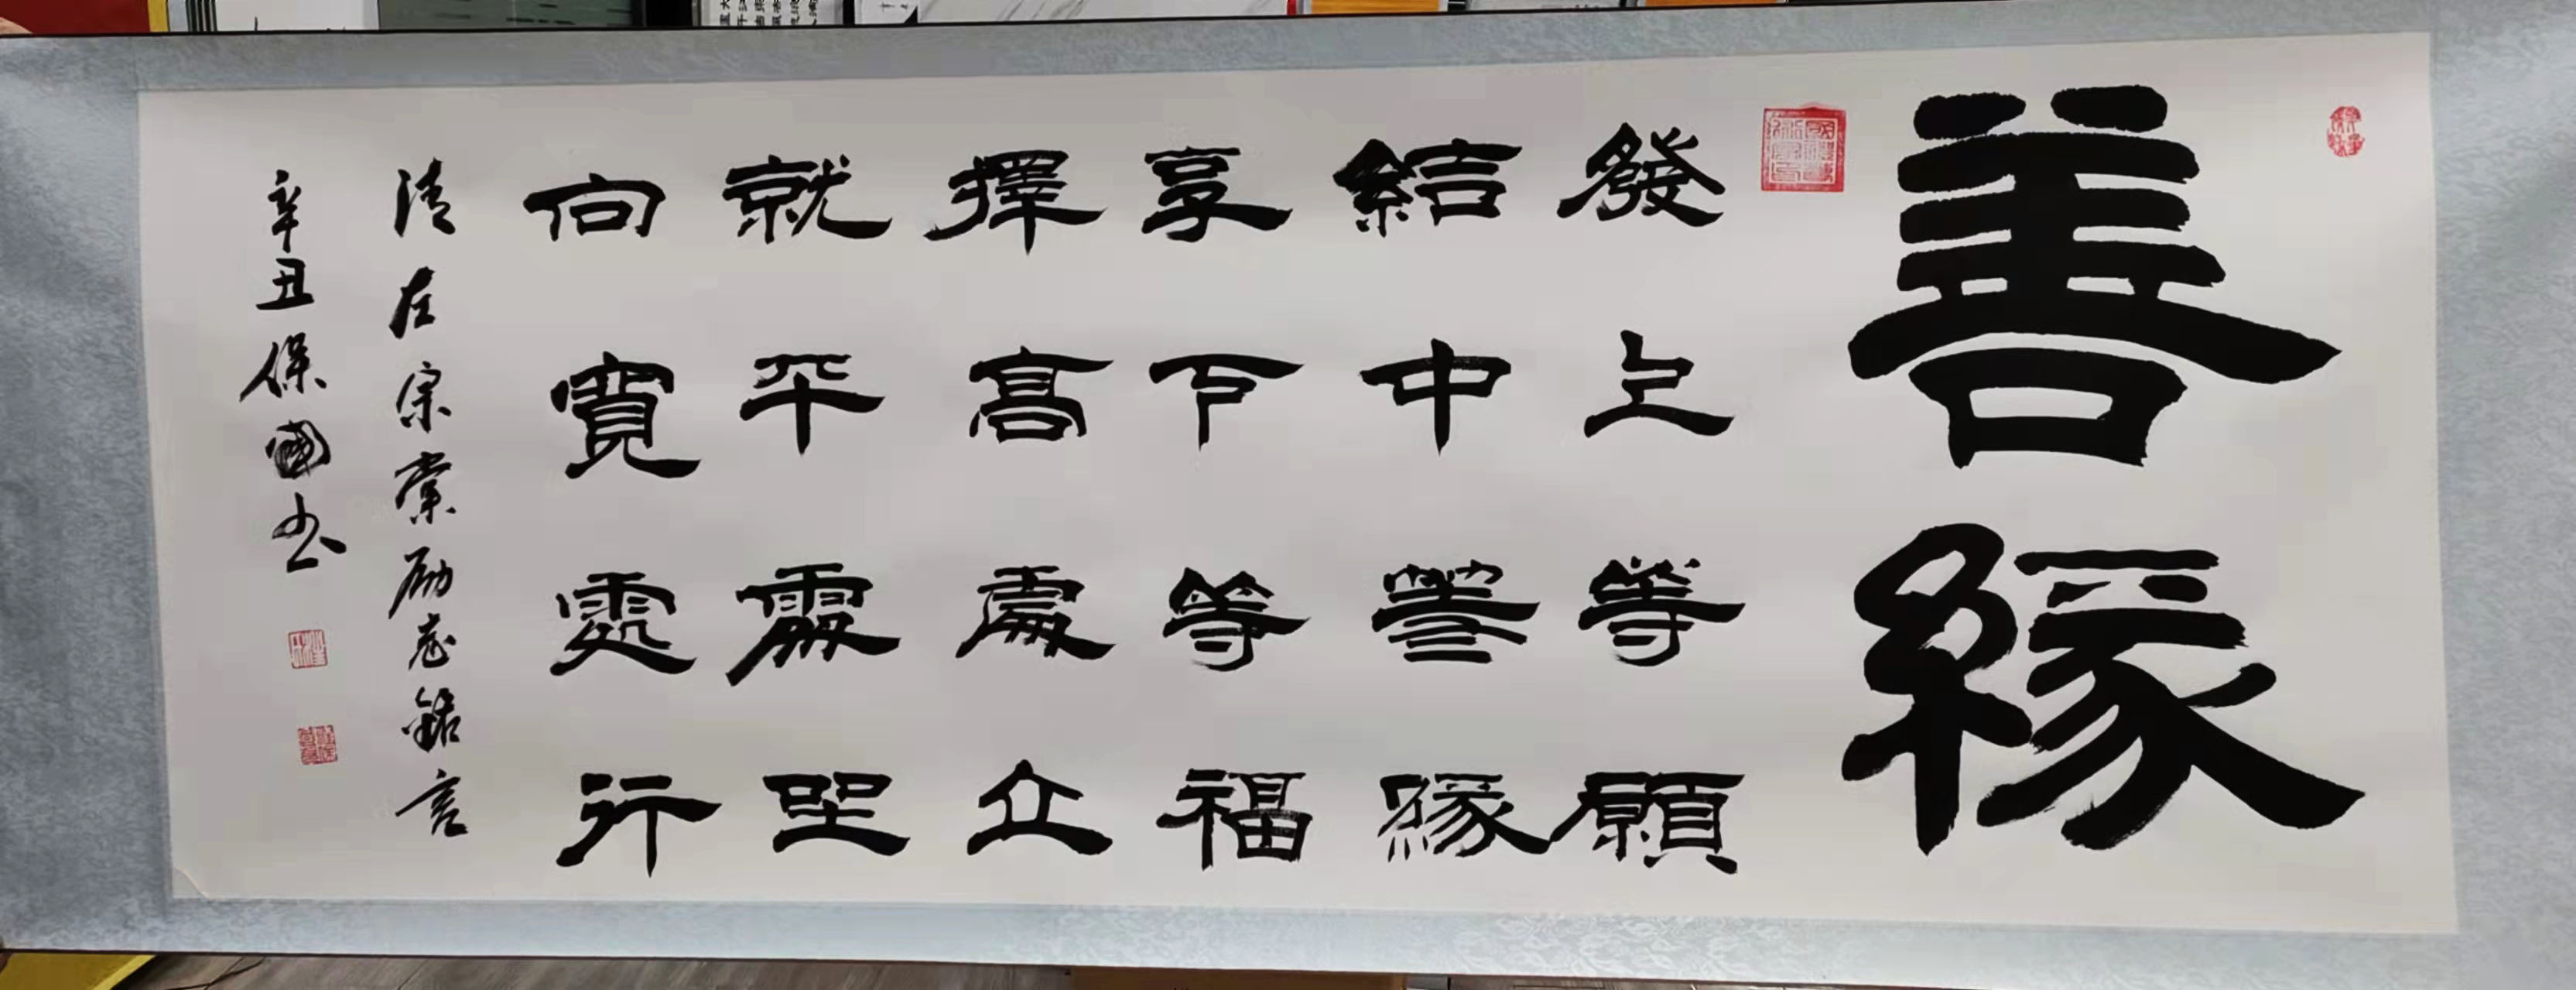 善緣
發上等願
結中等緣
享下等福
擇高處立
就平處坐
向寬處行
清左宗棠励志銘言
辛丑保國书